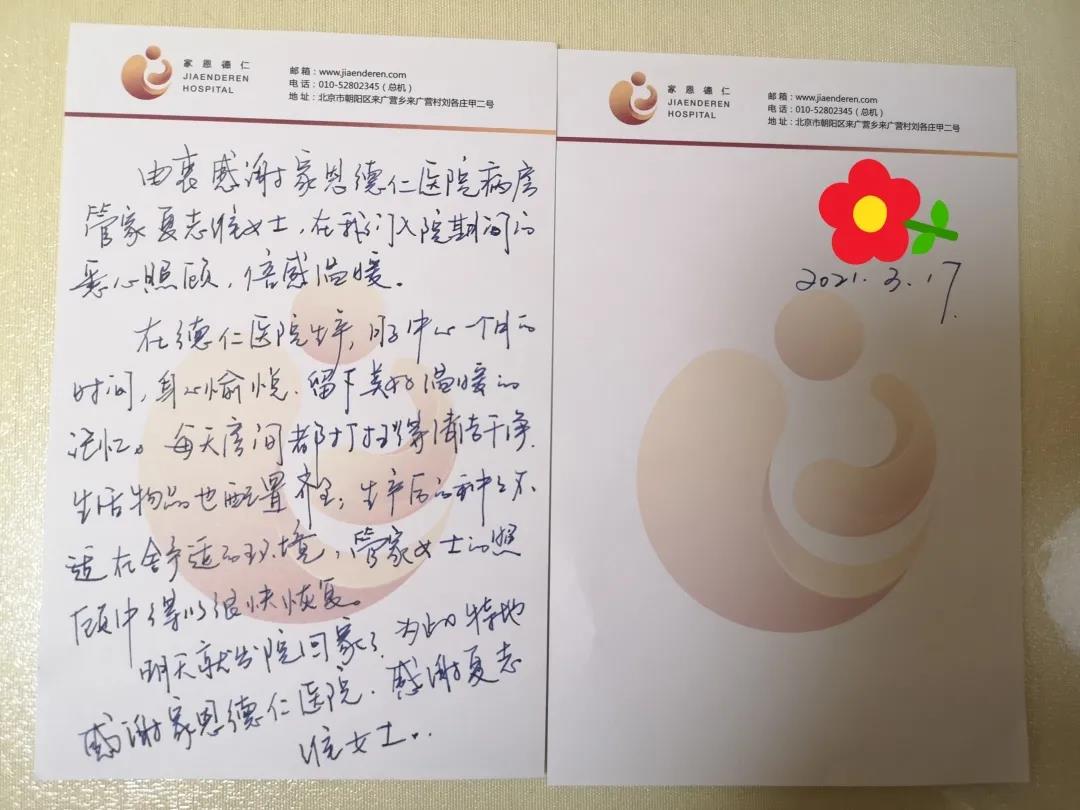 家恩德仁
JIAENDEREN
HOSPITAL
邮箱：www.jiaenderen.com
电话：010-52802345（总机）
地址：北京市朝阳区来广营乡来广营村刘各庄甲二号
由衷感谢家恩德仁医院病房
管家夏志女士，在我们入院期间的
悉心照顾，倍感温暖。
在德仁医院生产，月子中心一个月的
时间，身心愉悦．留下美好温暖的
记忆。每天房间都打扫得清洁干净．
生活物品也配置齐全；生产后的种种不
适在舒适的环境，管家女士的照
顾中得以很快恢复。
明天就出院回家了．为此特地
感谢家恩德仁医院．感谢夏志
女士．．
家恩德仁
JIAENDEREN
HOSPITAL
邮箱：www.jiaenderen.com
电话：010-52802345（总机）
地址：北京市朝阳区来广营乡来广营村刘各庄甲二号
2021.3.17.